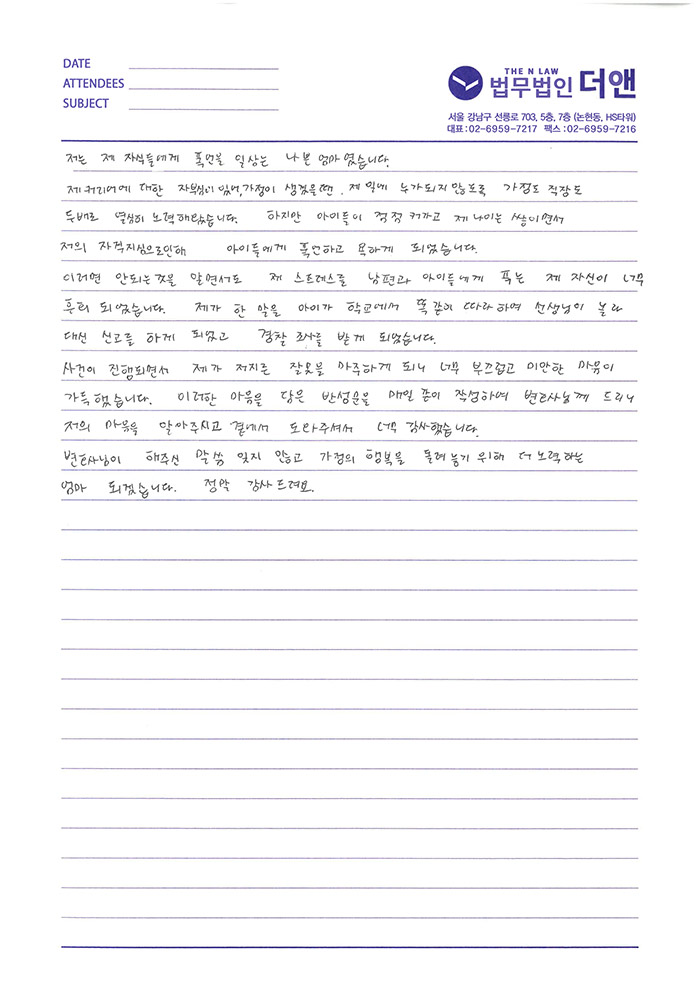 DATE
ATTENDEES
SUBJECT
THE N LAW
법무법인 더앤
서울 강남구 선릉로 703, 5층, 7층 (논현동, HS타워)
대표 : 02-6959-7217 팩스 : 02-6959-7216
저는 제 자식들에게 폭언을 일삼는 나쁜 엄마였습니다.
제 커리어에 대한 자부심이 있어, 가정이 생겼을땐. 제 일에 누가되지 않도록 가정도 직장도
두배로 열심히 노력해왔습니다. 하지만 아이들이 점점 커가고 제 나이는 쌓이면서
저의 자격지심으로인해 아이들에게 폭언하고 욕하게 되었습니다.
이러면 안되는것을 알면서도 제 스트레스를 남편과 아이들에게 푸는 제 자신이 너무
후회 되었습니다. 제가 한 말을 아이가 학교에서 똑같이 따라하여 선생님이 놀라
대신 신고를 하게 되었고 경찰 조사를 받게 되었습니다.
사건이 진행되면서 제가 저지른 잘못을 마주하게 되니 너무 부끄럽고 미안한 마음이
가득했습니다. 이러한 마음을 담은 반성문을 매일 같이 작성하여 변호사님께 드리니
저의 마음을 알아주시고 곁에서 도와주셔서 너무 감사했습니다.
변호사님이 해주신 말씀 잊지 않고 가정의 행복을 돌려놓기 위해 더 노력하는
엄마 되겠습니다. 정말 감사드려요.